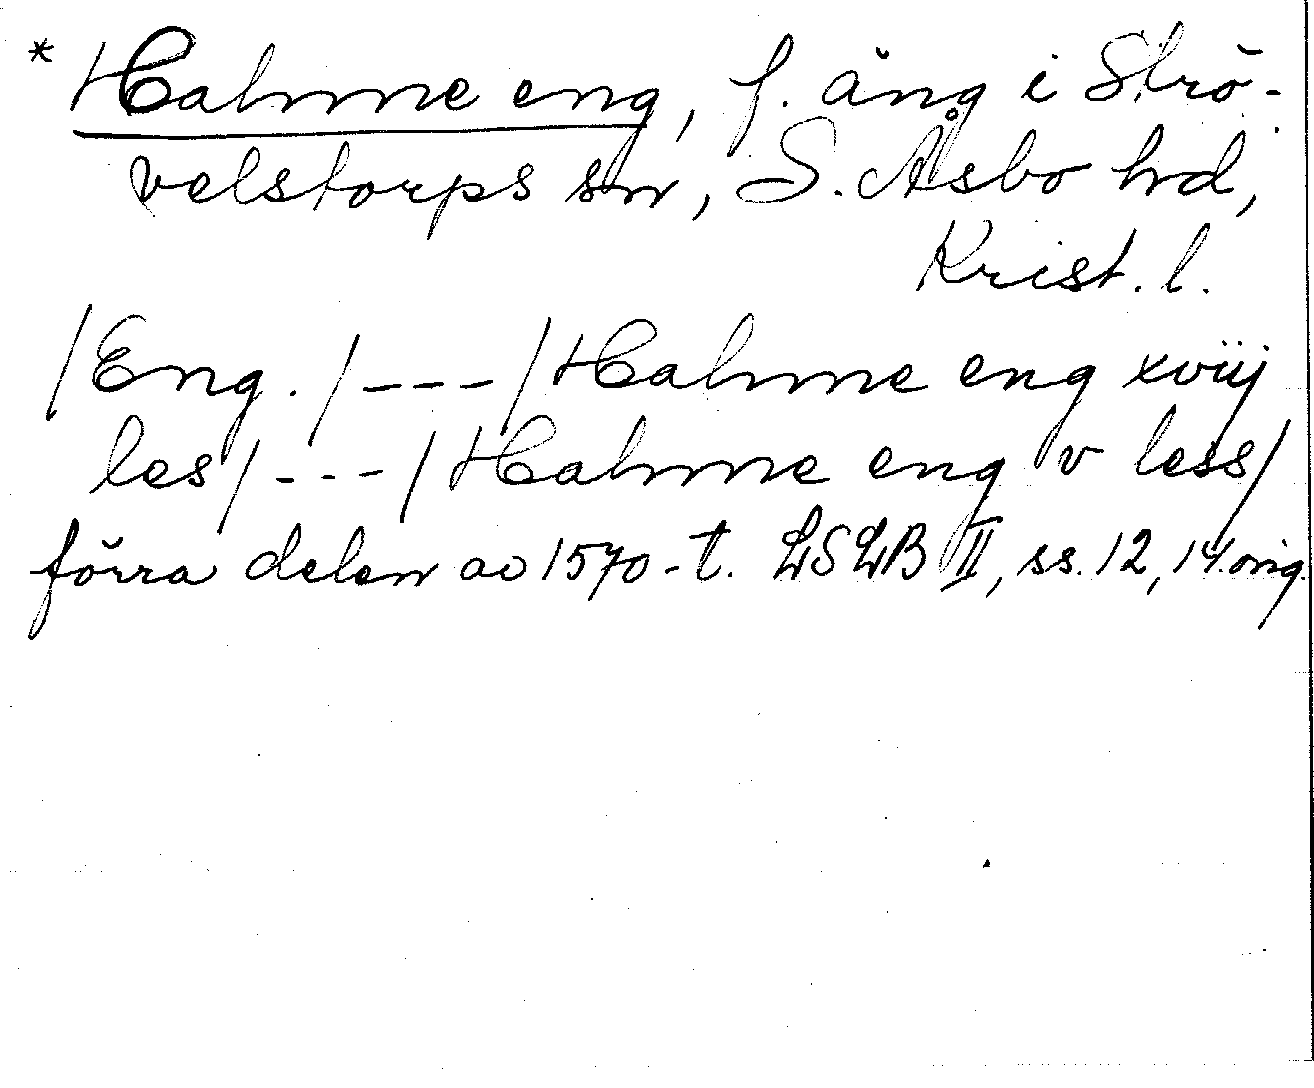 * Halmme eng, f. äng i Strö-
velstorps sn, S. Åsbo hd,
Krist. l.
/Eng./---/Halmme eng xviij
les/---/Halmme eng v less/
förra delen av 1570-t. LSLB II, ss. 12, 14. orig.